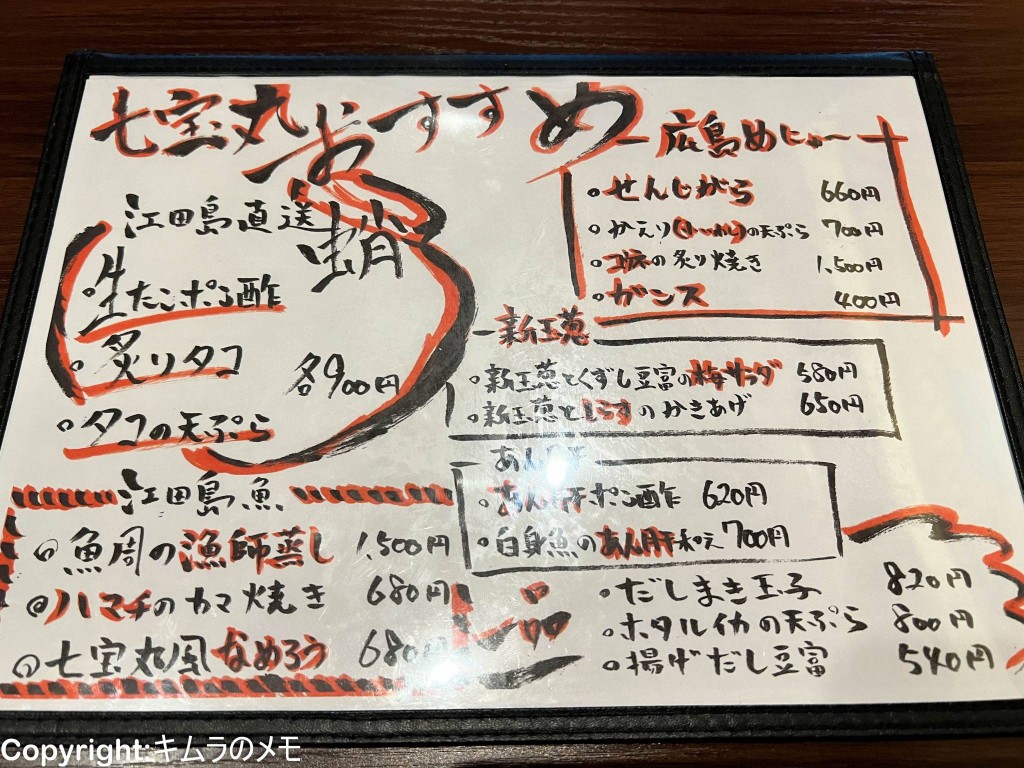 七宝丸おすすめ
江田島直送 蛸
生たこポン酢
炙りタコ 各900円
タコの天ぷら
江田島魚
魚周の漁師蒸し 1,500円
ハマチのカマ焼き 680円
七宝丸風なめろう 680円
広島めにゅー
せんじがら 660円
かえり(いーわし)の天ぷら 700円
の炙り焼き 1,500円
ガンス 400円
新玉葱
新玉葱とくずし豆富の梅サラダ 580円
新玉葱としらすのかきあげ 650円
あん肝
あん肝ポン酢 620円
白身魚のあん肝和え 700円
一品
だしまき玉子 820円
ホタルイカの天ぷら 800円
揚げだし豆富 540円
Copyright:キムラのメモ